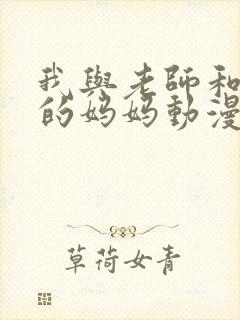 我與老師和
的媽媽動漫
草荷女青